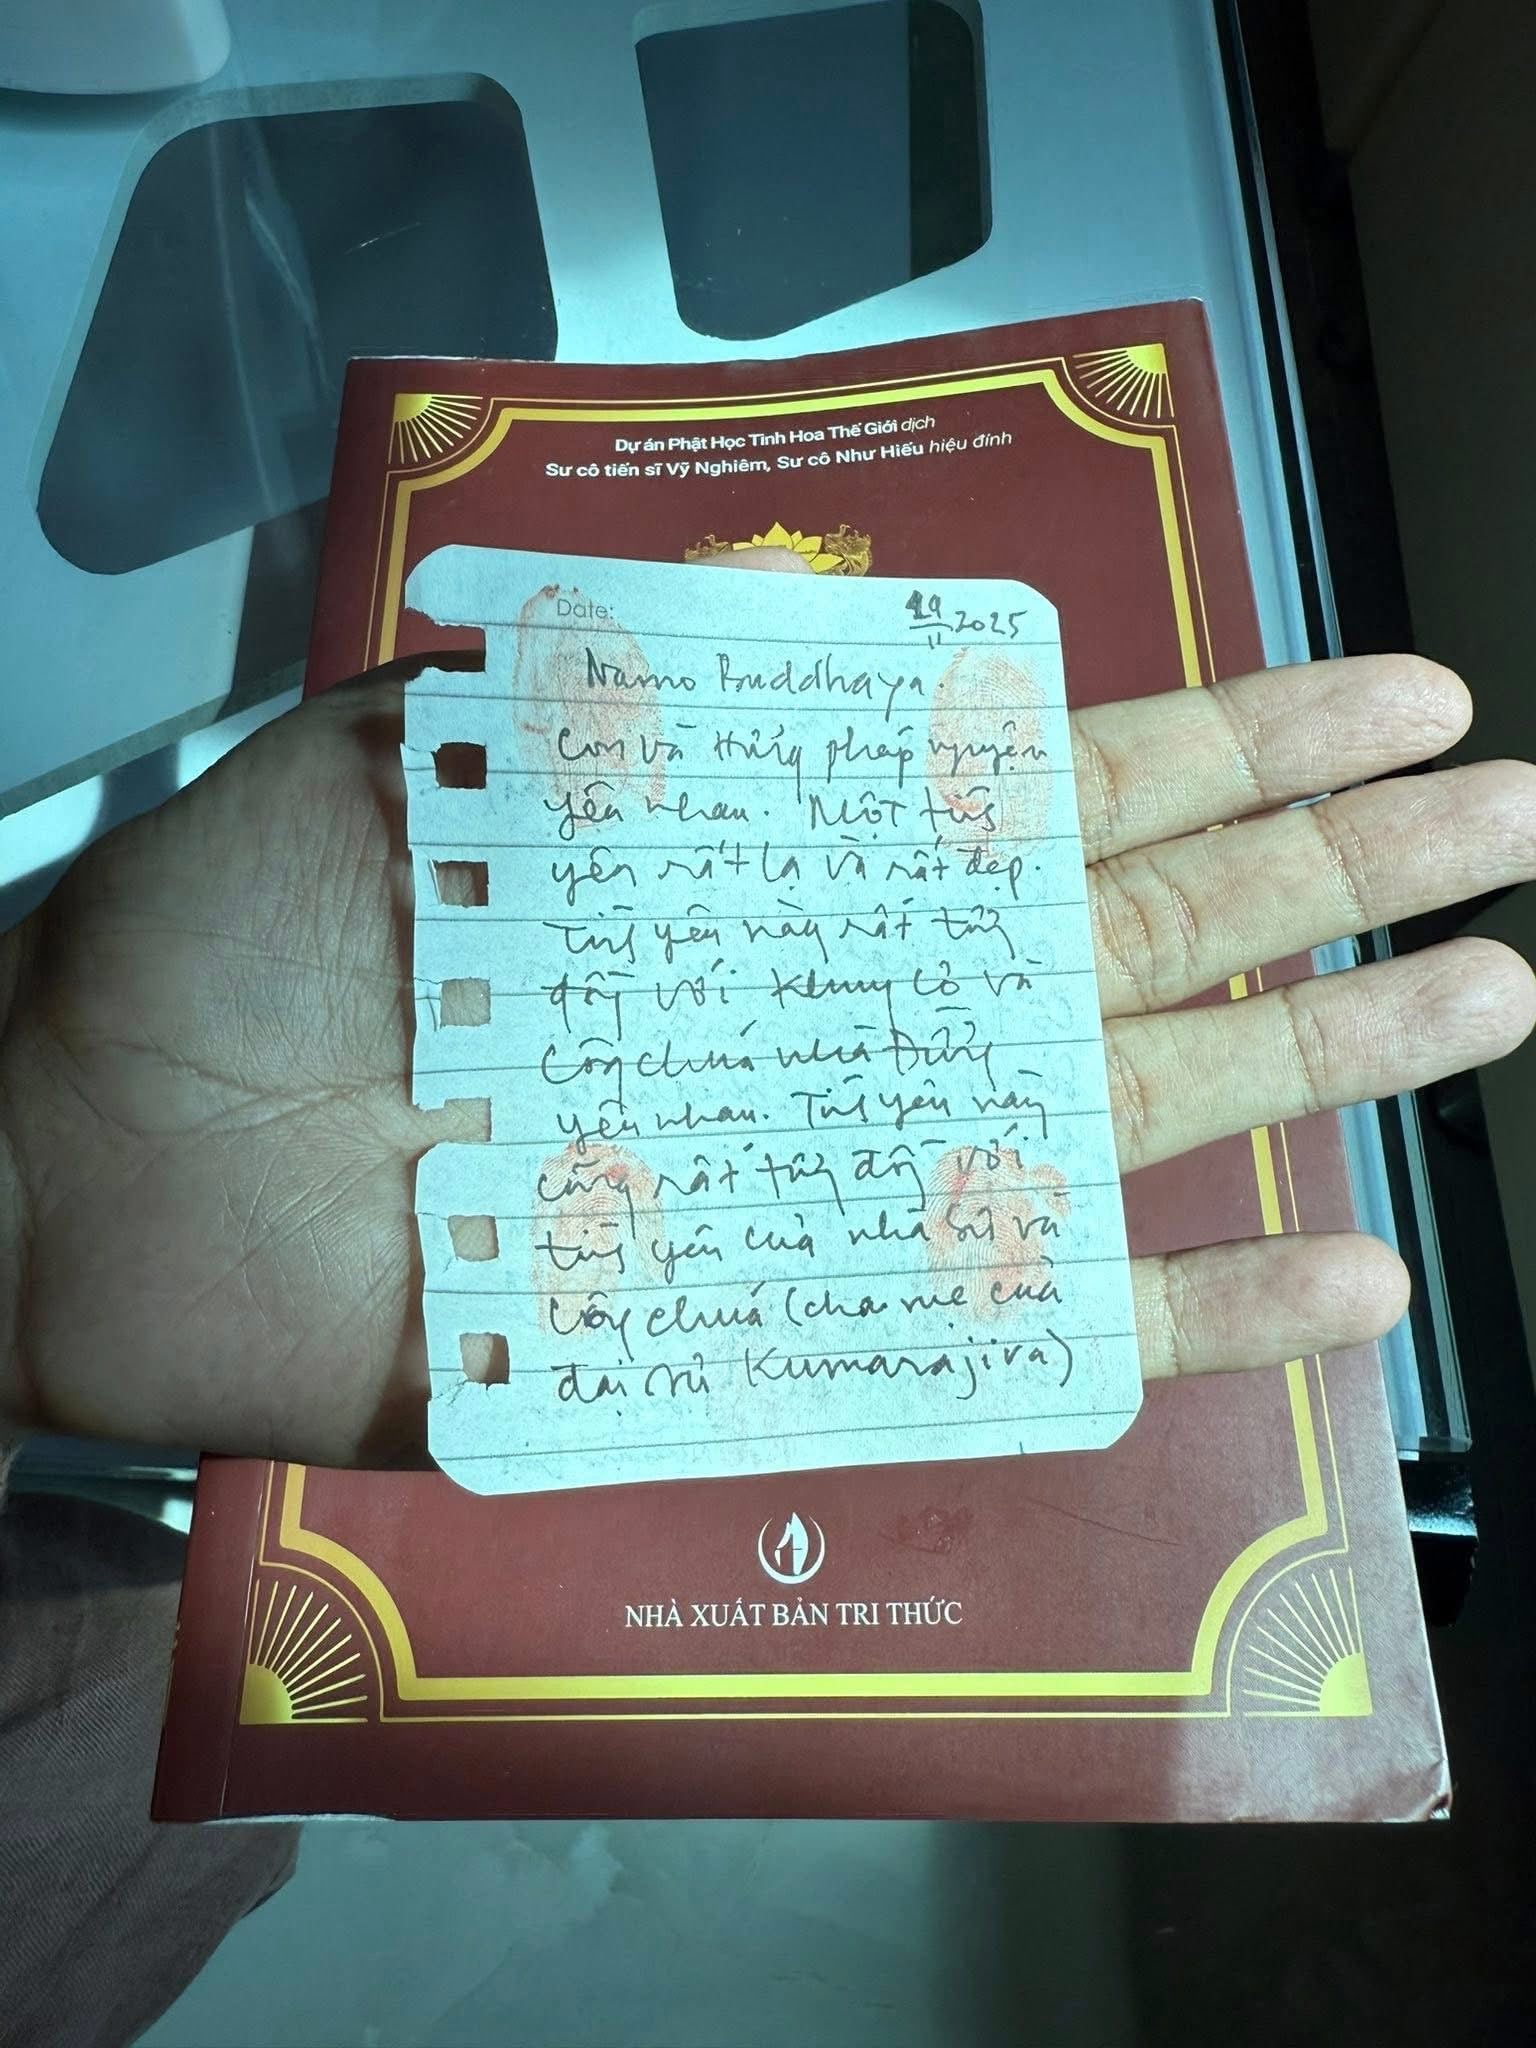 Dự án Phật Học Tinh Hoa Thế Giới dịch
Sư cô tiến sĩ Vỹ Nghiêm, Sư cô Như Hiếu hiệu đính
Date:
19/11 2025
Namo Buddhaya.
Con và Hùng pháp nguyện
yêu nhau. Một tình
yêu rất lạ và rất đẹp.
Tình yêu này rất tương
đồng với Khuy cô và
Công chúa nhà Đường
yêu nhau. Tình yêu này
cũng rất tương đồng với
tình yêu của nhà sư và
Công chúa (cha mẹ của
đại sư Kumarajiva)
NHÀ XUẤT BẢN TRI THỨC